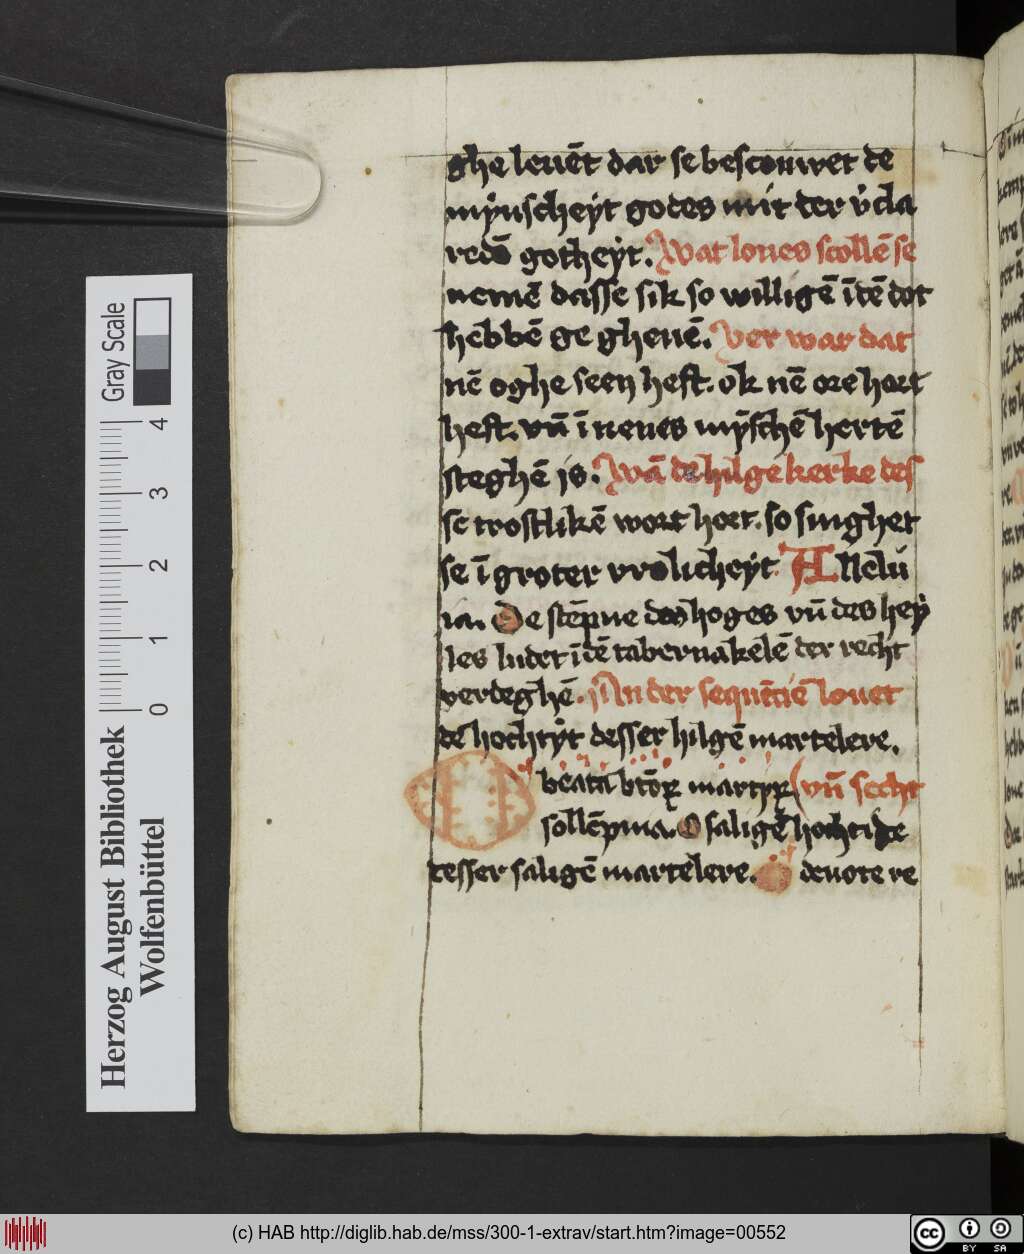 ghe leuēt dar se bescouwet de
mÿnscheÿt godes mit der v̄cla
redē gotheÿt. Wat loues scollē se
nemē dasse sik so willigē ī dē dot
hebbē ge gheuē. Ver war dat
nē oghe seen heft. ok nē ore hort
heft. vn̄ ī neues mȳschē hertē
steghē is. Wā de hilge kerke des
se trostlikē wort hort. so singhet
se ī groter vrolicheÿt Allelu
ia. De stēpne des hoges vn̄ des heÿ
les ludet ī dē tabernakelē der recht
verdeghē. In der sequēcie louet
de hochtÿt desser hilgē martelere.
O beata btōꝝ martyꝝ vn̄ secht
sollēpnia. O saligē hochtide
desser saligē martelere. O devote re
Gray Scale
0 1 2 3 4
Herzog August Bibliothek
Wolfenbüttel
(c) HAB http://diglib.hab.de/mss/300-1-extrav/start.htm?image=00552
cc BY SA